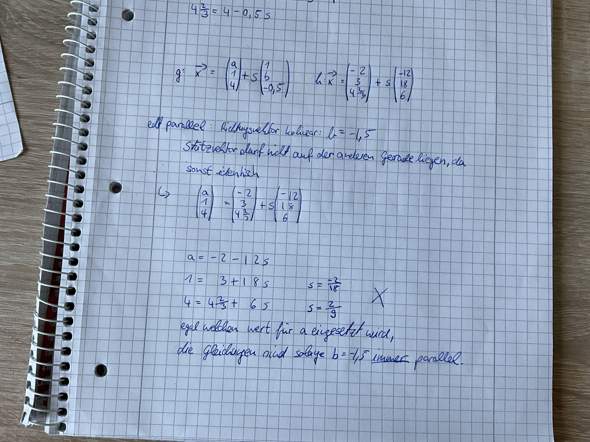 4 2/3 = 4 - 0,5 s
g: x⃗ = (a 1 4) + s (1 b -0,5) h: x⃗ = (-2 3 4 2/3) + s (-12 18 6)
echt parallel: Richtungsvektor kolinear: b = -1,5
Stützvektor darf nicht auf der anderen Gerade liegen, da
sonst identisch
↳ (a 1 4) = (-2 3 4 2/3) + s (-12 18 6)
a = -2 - 12 s
1 = 3 + 18 s s = -2/18
4 = 4 2/3 + 6 s s = 2/9 X
egal welchen wert für a eingesetzt wird,
die Gleichungen sind solage b = -1,5 immer parallel.